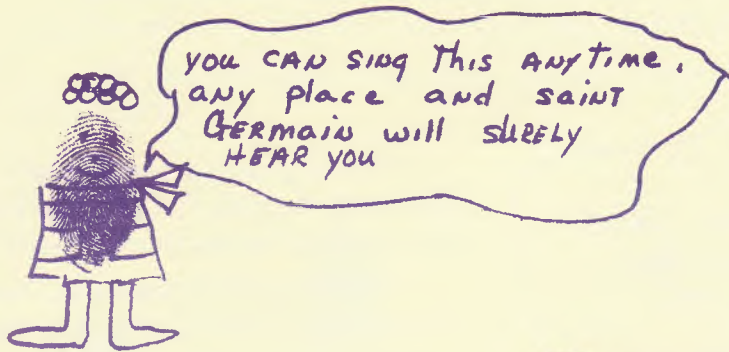 you CAN SING This ANYTIME,
any place and saint
GERMAIN will SURELY
HEAR YOU